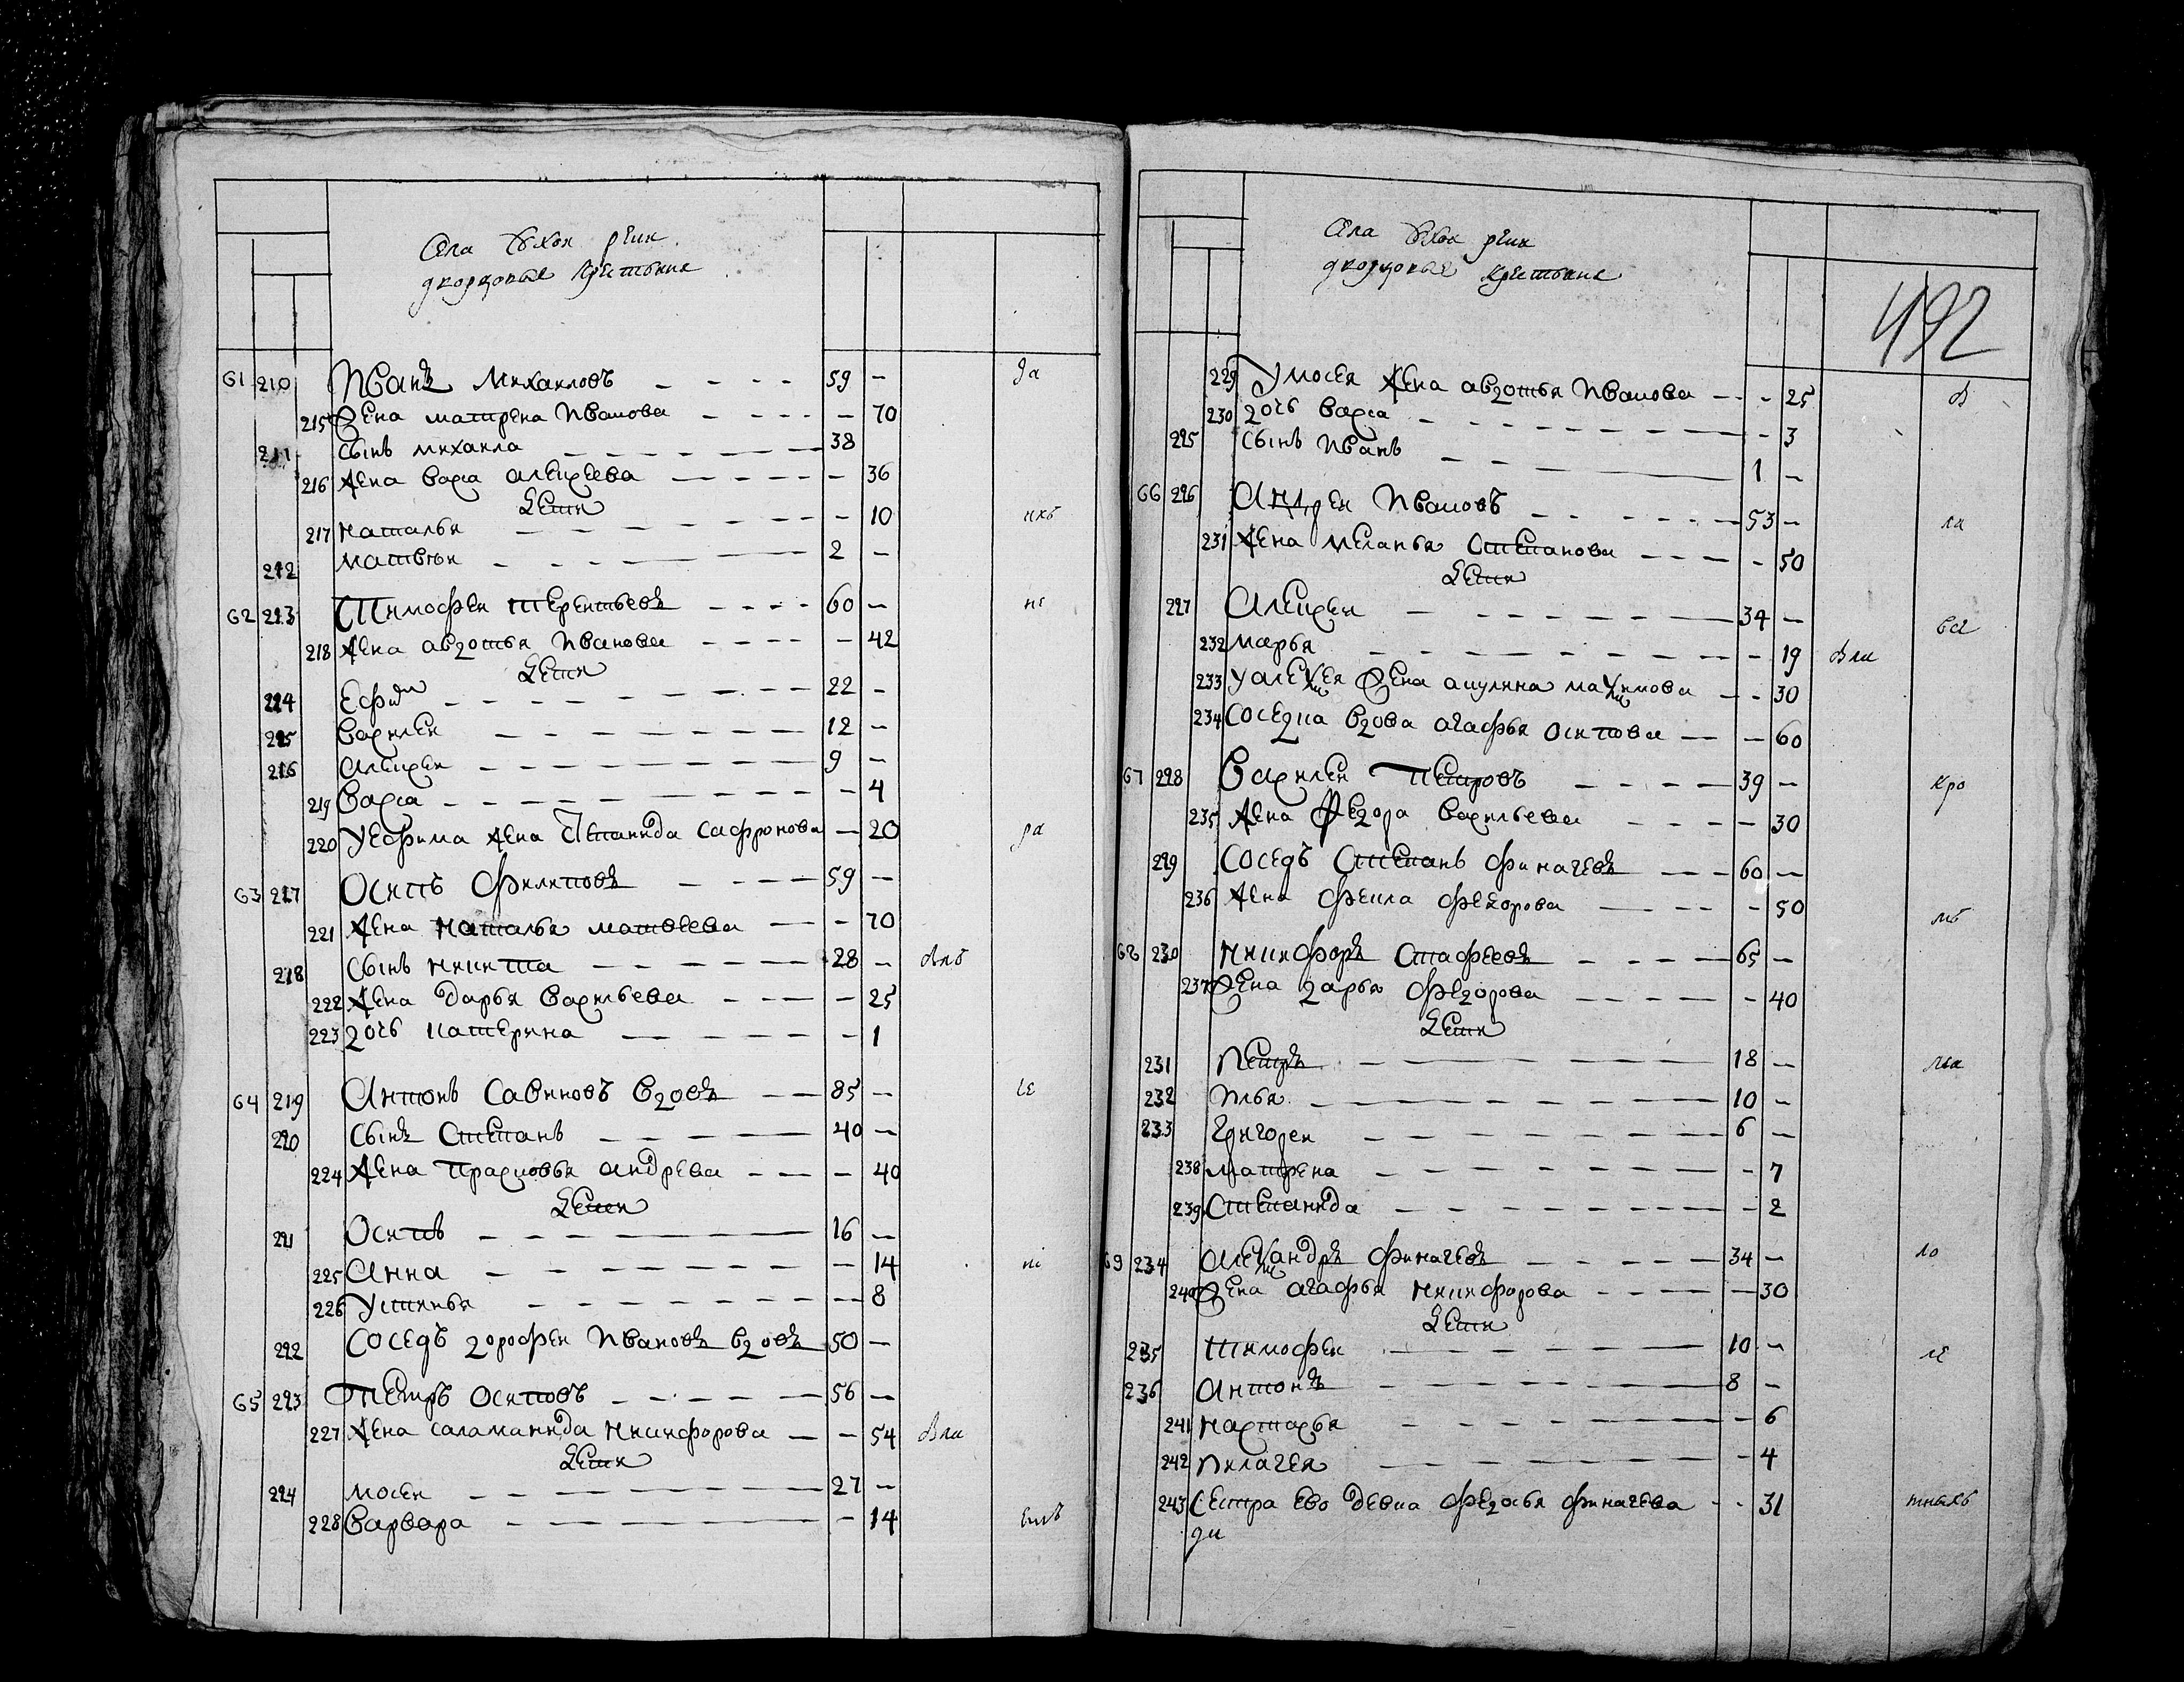 Села Быхои реки
дворцовые крестьяне
61 210 Иванъ Михаиловъ 59 — да
215 Жена матрена Иванова — 70
211 сынъ михаила 38
216 жена васса алексеева — 36
дети
217 наталья — 10
212 матвеи 2 —
62 213 Тимофеи терентьевъ 60 — не
218 жена авдотья Иванова — 42
дети
214 Ефимъ 22 —
215 василеи 12 —
216 алексеи 9 —
219 васса — 4
220 у ефима жена Степанида сафронова — 20 ра
63 217 Осипъ Филиповъ 59 —
221 жена наталья матвеева — 70
218 сынъ никита 28 —
222 жена дарья васильева — 25
223 дочь катерина — 1
64 219 Антонъ Савиновъ вдовъ 85 — се
220 сынъ Степанъ 40 —
224 жена прасковья андрева — 40
дети
221 Осипъ 16 —
225 анна — 14
226 устинья — 8
222 соседъ дорофеи Ивановъ вдовъ 50 —
65 223 Петръ осиповъ 56 —
227 жена саламанида никифорова — 54
дети
224 мосеи 27 —
228 варвара — 14
Села Быхои реки
дворцовые крестьяне
492
229 у мосея жена авдотья Иванова — 25
230 дочь васса — 3
225 сынъ Иванъ 1 —
66 226 Андреи Ивановъ 53 — ла
231 жена меланья Степанова — 50
дети
227 Алексеи 34 —
232 марья — 19
233 у алексея жена акулина максимова — 30
234 соседка вдова агафья осипова — 60
67 228 Василеи Петровъ 39 — кро
235 жена Федора васильева — 30
229 соседъ Степанъ финагевъ 60 —
236 жена фекла федорова — 50
68 230 никифоръ Стафеевъ 65 —
237 жена дарья федорова — 40
дети
231 Петръ 18 —
232 Илья 10 —
233 григореи 6 —
238 матрена — 7
239 Степанида — 2
69 234 Александръ финагевъ 34 — ло
240 жена агафья никифорова — 30
дети
235 Тимофеи 10 —
236 антонъ 8 —
241 настасья — 6
242 пилагея — 4
243 сестра ево девка федосья финагева — 31